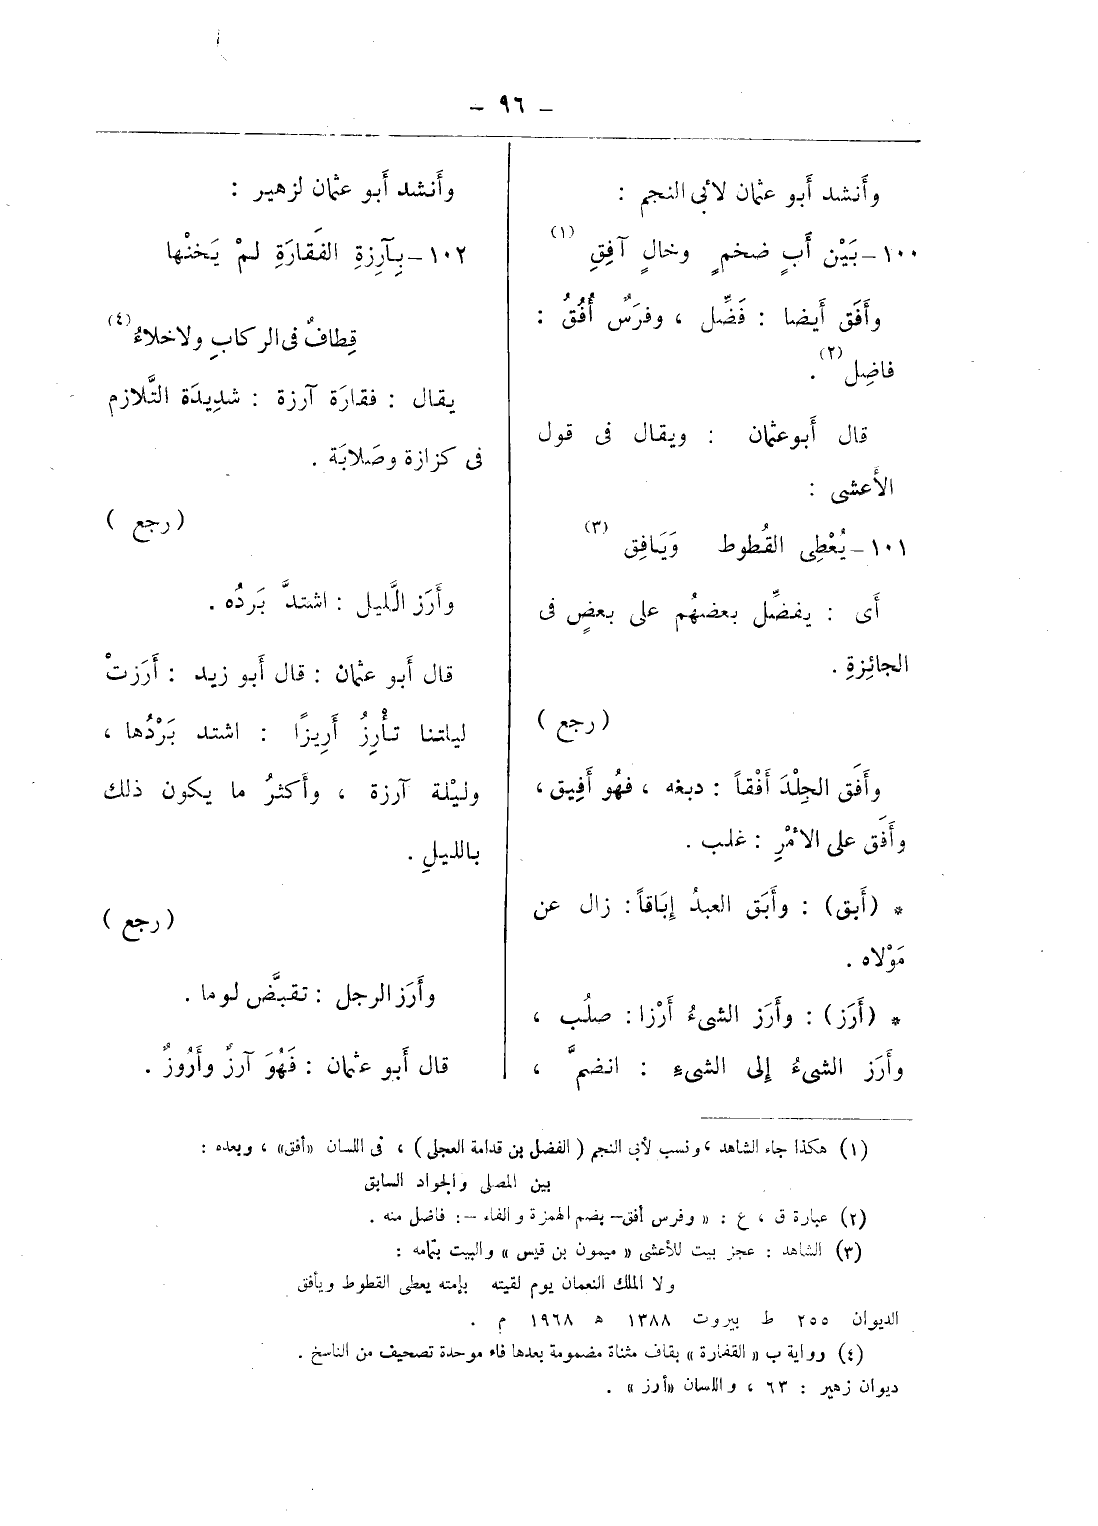 – ٩٦ –
وأَنشد أَبو عثمان لأَبى النجم :
١٠٠ – بَيْن أَبٍ ضخمٍ وخالٍ آفِقِ (١)
وأَفَق أَيضا : فَضَّل ، وفرَسٌ أُفُقٌ :
فاضِل (٢) .
قال أَبو عثمان : ويقال فى قول
الأَعشى :
١٠١ – يُعْطِى القُطوط وَيَافِق (٣)
أَى : يفضِّل بعضهُم على بعضٍ فى
الجائِزةِ .
( رجع )
وأَفَق الجِلْدَ أَفْقاً : دبغه ، فهُو أَفِيق ،
وأَفَق على الأَمْرِ : غلب .
* (أَبق) : وأَبَق العبدُ إِبَاقاً : زال عن
مَوْلاه .
* (أَرَز) : وأَرَز الشىءُ أَرْزا : صلُب ،
وأَرَز الشىءُ إِلى الشىءِ : انضمَّ ،
وأَنشد أَبو عثمان لزهير :
١٠٢ – بِآرِزةِ الفَقَارَةِ لمْ يَخنْها
قِطافٌ فى الركابِ ولاخلاءُ (٤)
يقال : فقارَة آرزة : شديِدَة التَّلازم
فى كزازة وصَلابَة .
( رجع )
وأَرَز الَّليل : اشتدَّ بَردُه .
قال أَبو عثمان : قال أَبو زيد : أَرَزتْ
ليلتنا تأْرِزُ أَرِيزًا : اشتد بَرْدُها ،
وليْلة آرزة ، وأَكثرُ ما يكون ذلك
بالليلِ .
( رجع )
وأَرَز الرجل : تقبَّض لوما .
قال أَبو عثمان : فَهُوَ آرزٌ وأَرُوزٌ .
(١) هكذا جاء الشاهد ، ونسب لأبى النجم ( الفضل بن قدامة العجلى ) ، فى اللسان «أفق» ، وبعده :
بين المصلى والجواد السابق
(٢) عبارة ق ، ع : « وفرس أفق – بضم الهمزة والفاء – : فاضل منه .
(٣) الشاهد : عجز بيت للأعشى « ميمون بن قيس » والبيت بتمامه :
ولا الملك النعمان يوم لقيته بإمته يعطى القطوط ويأفق
الديوان ٢٥٥ ط بيروت ١٣٨٨ ه ١٩٦٨ م .
(٤) رواية ب « القفارة » بقاف مثناة مضمومة بعدها فاء موحدة تصحيف من الناسخ .
ديوان زهير : ٦٣ ، واللسان «أرز» .